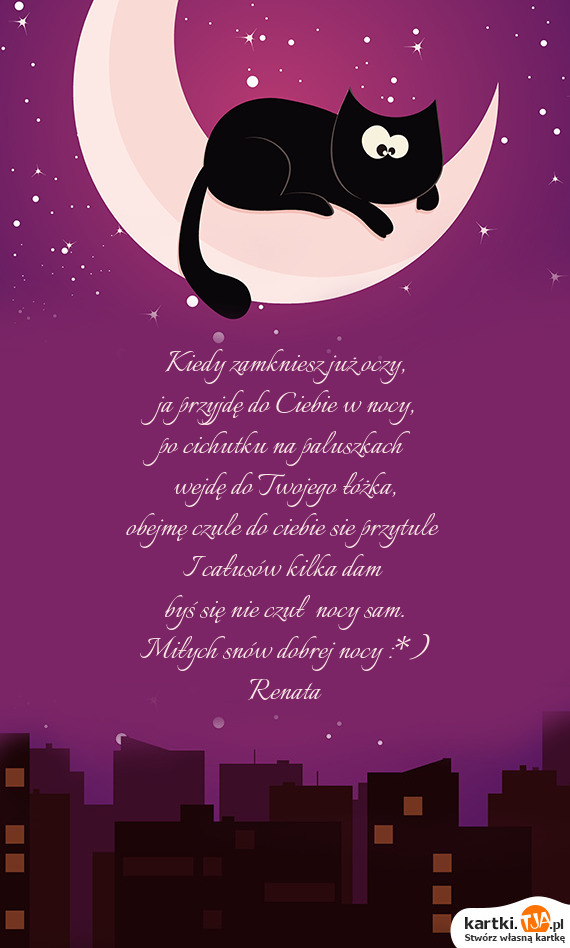 Kiedy zamkniesz już oczy,
ja przyjdę do Ciebie w nocy,
po cichutku na paluszkach
wejdę do Twojego łóżka,
obejmę czule do ciebie sie przytule
I całusów kilka dam
byś się nie czuł nocy sam.
Miłych snów dobrej nocy :* )
Renata
kartki.TJA.pl
Stwórz własną kartkę